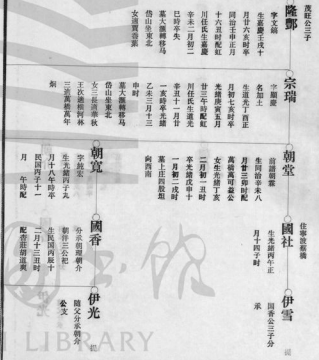 茂旺公三子
隆酆
字文錦
生嘉慶壬戌十
月廿六亥时卒
同治壬申正月
十六丑时配虹
川任氏生嘉慶
辛未二月初二
巳時卒失
墓大滙轉移马
岱山坐東北
女適賈善葉
宗瑞
字顯慶
名加土
生道光丁酉正
月初七亥时卒
光緒庚寅五月
廿三午時配虹
川任氏生道光
辛丑十一月廿
一亥時卒光緒
乙未三月十三
申时
墓大滙轉移马
岱山坐東北
女三長適華秋
王次適楓河林
三適萬橋萬年
烟
朝堂
前諱朝霖
生同治辛未八
月廿三卯时配
萬橋萬可益公
女生光緒丁亥
二月初一丑时
卒光緒戊申十
一月初二戌时
墓上庄四股坦
向西南
朝寬
字純宏
生光緒丙子九
月十八午時卒
民国丙子十一
月 午時配
住常波蔡橋
國社
生光緒丙午正
月十四子时
國香
分承朝瓊朝介
朝伴三公祀
生民国丙辰十
二月十三丑时
配杏莊胡道貞
伊雪
国香公三子分
承
伊光
隨父分承朝分
公支
LIBRARY